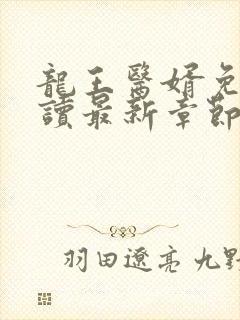 龍王醫婿免
讀最新章節
羽田遼亮 九野